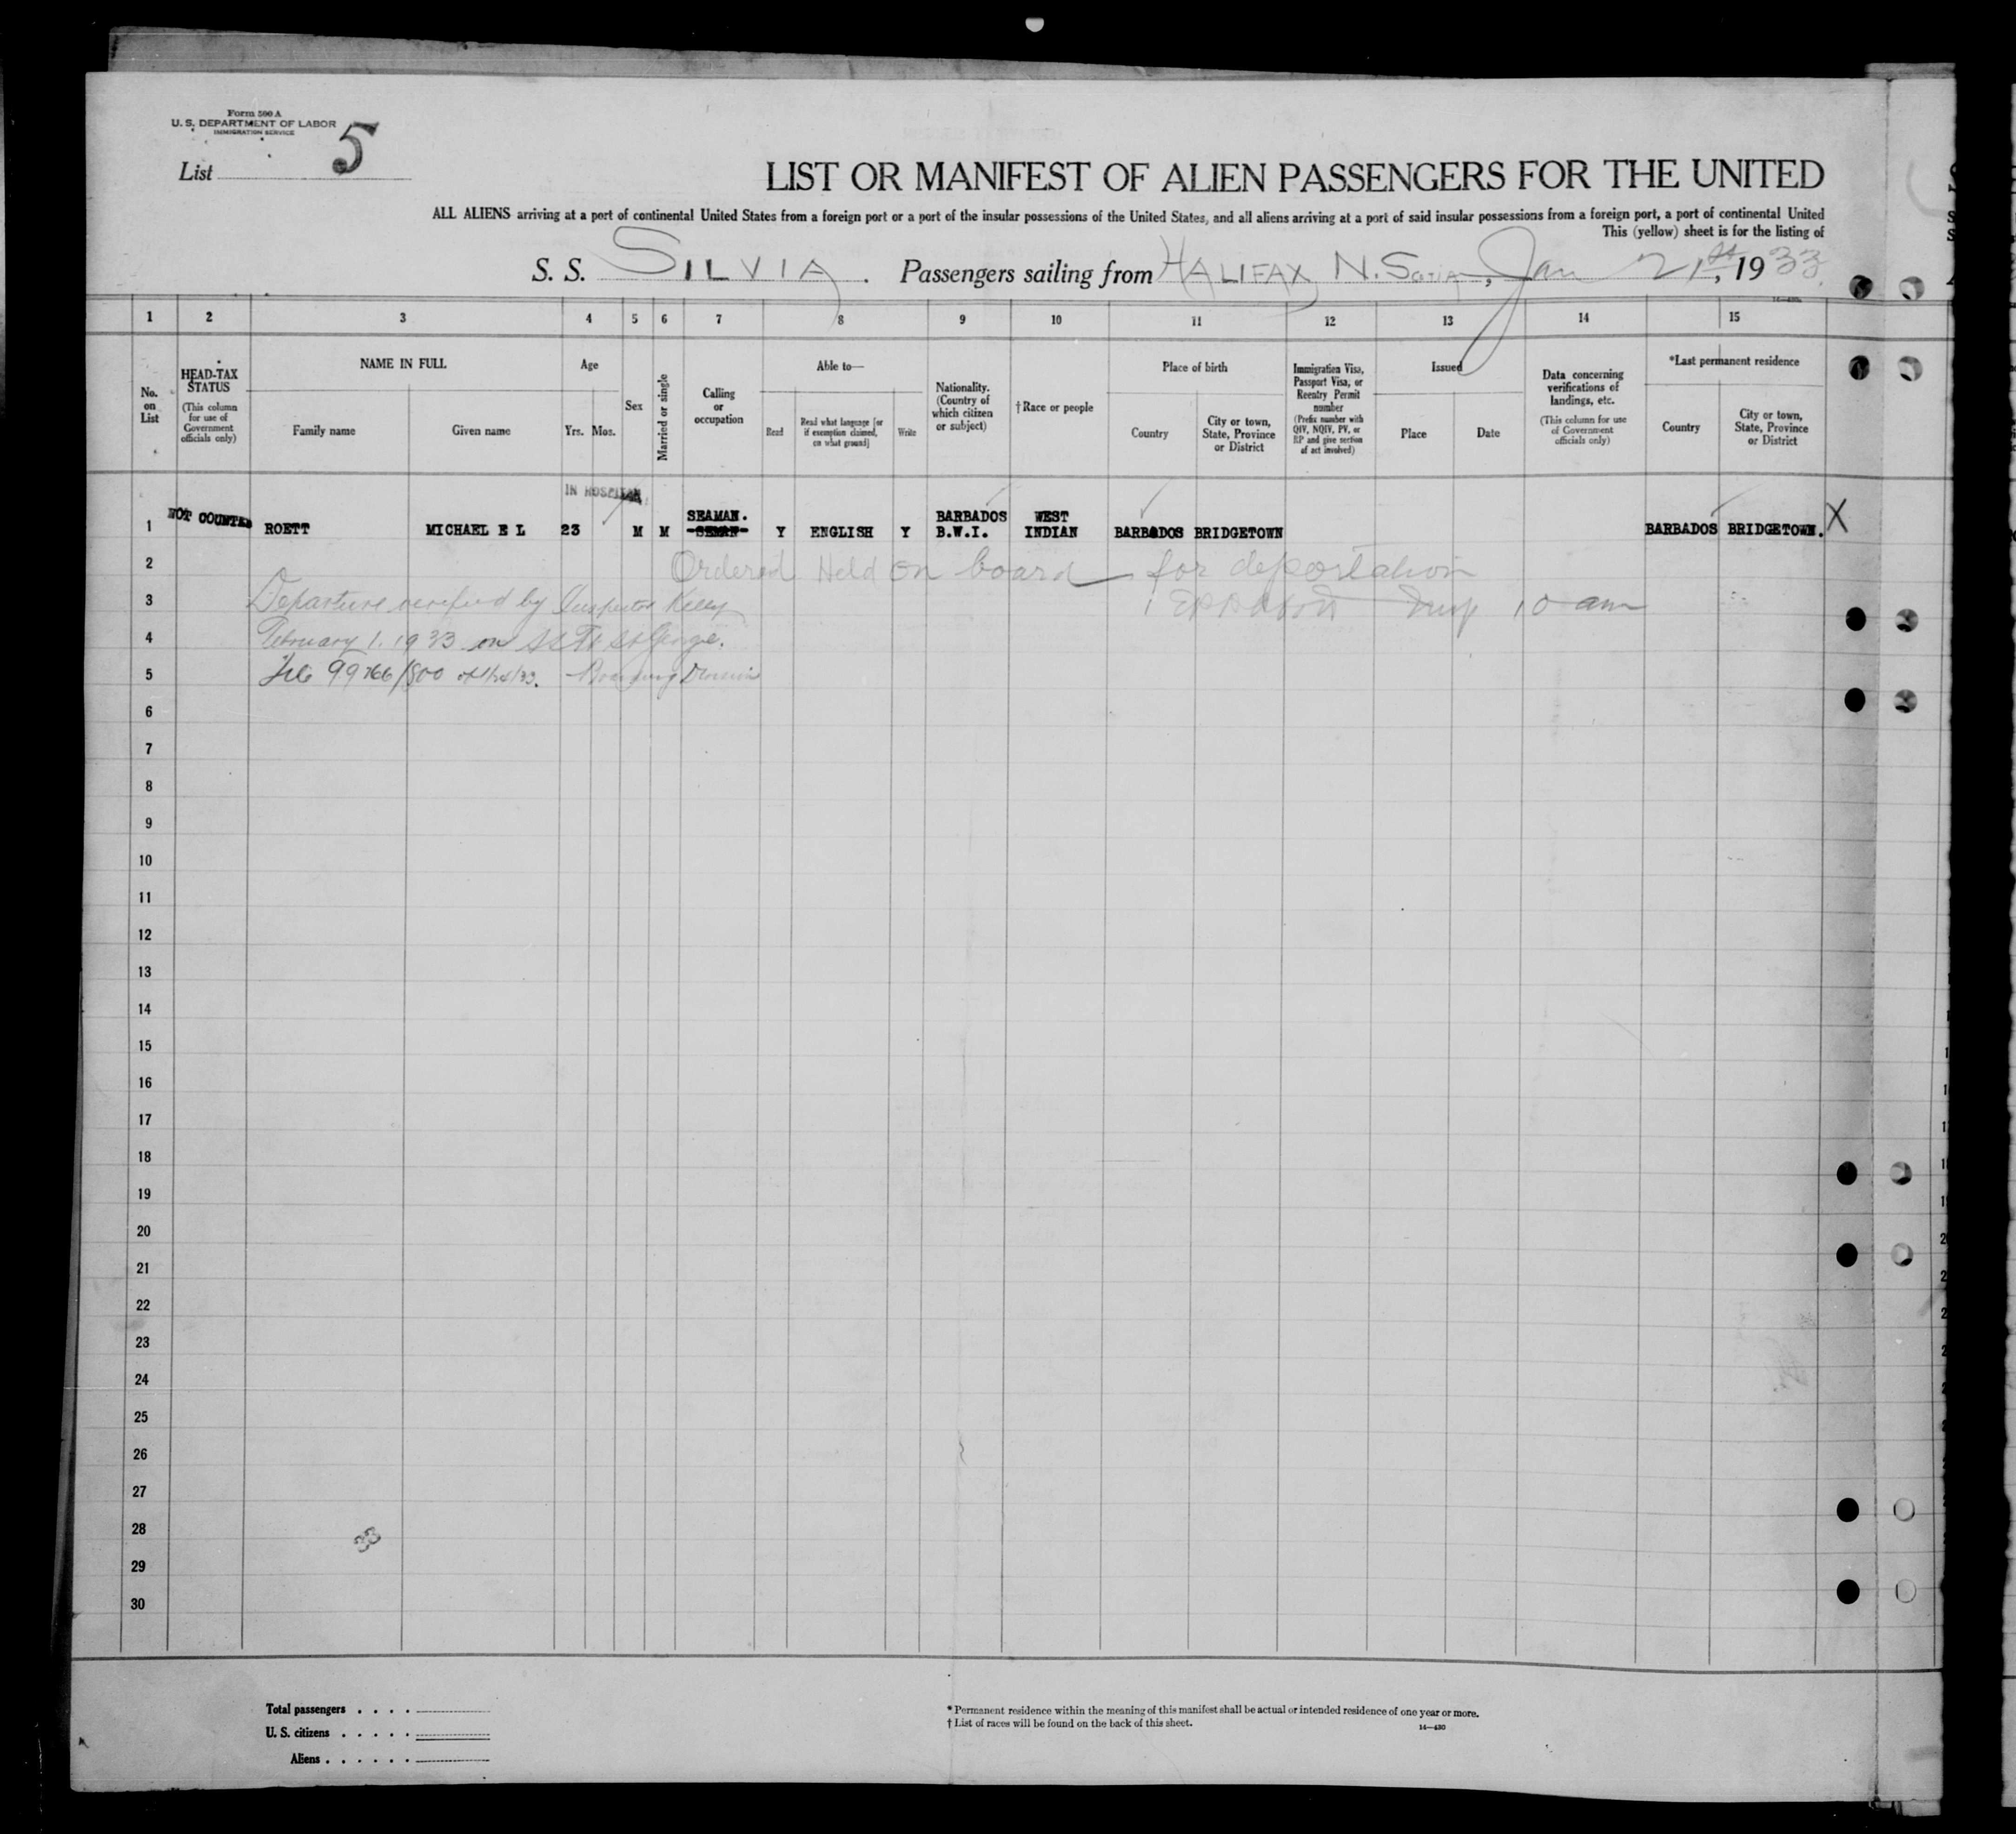 Form 500 A
U. S. DEPARTMENT OF LABOR
IMMIGRATION SERVICE
List 5
LIST OR MANIFEST OF ALIEN PASSENGERS FOR THE UNITED
ALL ALIENS arriving at a port of continental United States from a foreign port or a port of the insular possessions of the United States, and all aliens arriving at a port of said insular possessions from a foreign port, a port of continental United
This (yellow) sheet is for the listing of
S. S. SILVIA. Passengers sailing from HALIFAX N. Scotia, Jan 21st, 1933
1 2 3 4 5 6 7 8 9 10 11 12 13 14 15
No. on List
HEAD-TAX STATUS (This column for use of Government officials only)
NAME IN FULL
Family name
Given name
Age
Yrs. Mos.
Sex
Married or single
Calling or occupation
Able to—
Read
Read what language [or if exemption claimed, on what ground]
Write
Nationality. (Country of which citizen or subject)
†Race or people
Place of birth
Country
City or town, State, Province or District
Immigration Visa, Passport Visa, or Reentry Permit number (Prefix number with QIV, NQIV, PV, or RP and give section of act involved)
Issued
Place
Date
Data concerning verifications of landings, etc. (This column for use of Government officials only)
*Last permanent residence
Country
City or town, State, Province or District
IN HOSPITAL
SEAMAN. BARBADOS WEST
1 NOT COUNTED ROETT MICHAEL E L 23 M M SEMAN Y ENGLISH Y B.W.I. INDIAN BARBADOS BRIDGETOWN BARBADOS BRIDGETOWN. X
2 Ordered Held on board for deportation
3 Departure verified by Inspector Kelly Insp 10 am
4 February 1. 1933 on St George.
5 File 99766/800 Division
6
7
8
9
10
11
12
13
14
15
16
17
18
19
20
21
22
23
24
25
26
27
28
29
30
33
Total passengers . . . .
U. S. citizens . . . . .
Aliens . . . . . .
* Permanent residence within the meaning of this manifest shall be actual or intended residence of one year or more.
† List of races will be found on the back of this sheet.
14—430